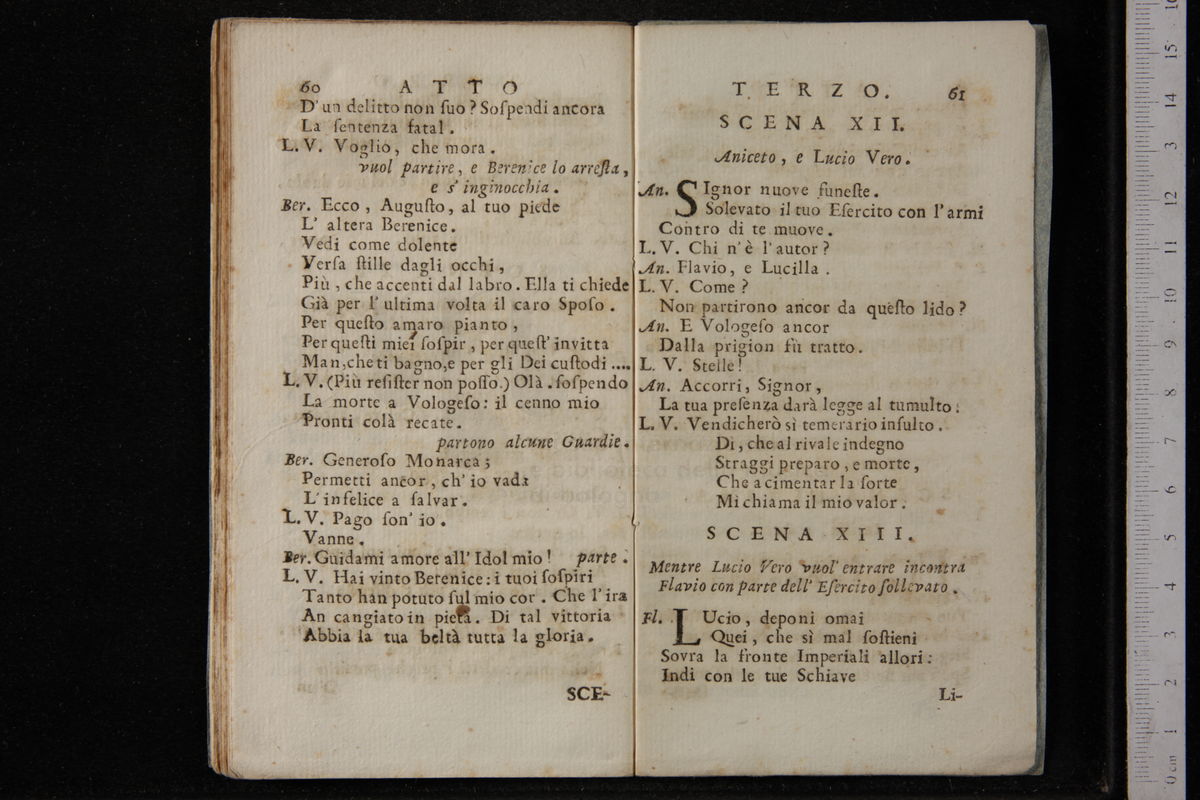 60 ATTO
D' un delitto non ſuo? Soſpendi ancora
La ſentenza fatal.
L. V. Voglio, che mora.
vuol partire, e Berenice lo arreſta,
e s' inginocchia.
Ber. Ecco, Auguſto, al tuo piede
L' altera Berenice.
Vedi come dolente
Verſa ſtille dagli occhi,
Più, che accenti dal labro. Ella ti chiede
Già per l' ultima volta il caro Spoſo.
Per queſto amaro pianto,
Per queſti miei ſoſpir, per queſt' invitta
Man, che ti bagno, e per gli Dei cuſtodi ....
L. V. (Più reſiſter non poſſo.) Olà. ſoſpendo
La morte a Vologeſo: il cenno mio
Pronti colà recate.
partono alcune Guardie.
Ber. Generoſo Monarca;
Permetti ancor, ch' io vada
L' infelice a ſalvar.
L. V. Pago ſon' io.
Vanne.
Ber. Guidami amore all' Idol mio! parte.
L. V. Hai vinto Berenice: i tuoi ſoſpiri
Tanto han potuto ſul mio cor. Che l' ira
An cangiato in pietà. Di tal vittoria
Abbia la tua beltà tutta la gloria.
SCE-
TERZO. 61
SCENA XII.
Aniceto, e Lucio Vero.
An. SIgnor nuove funeſte.
Solevato il tuo Eſercito con l' armi
Contro di te muove.
L. V. Chi n' è l' autor?
An. Flavio, e Lucilla.
L. V. Come?
Non partirono ancor da queſto lido?
An. E Vologeſo ancor
Dalla prigion fù tratto.
L. V. Stelle!
An. Accorri, Signor,
La tua preſenza darà legge al tumulto.
L. V. Vendicherò sì temerario inſulto.
Di, che al rivale indegno
Straggi preparo, e morte,
Che a cimentar la ſorte
Mi chiama il mio valor.
SCENA XIII.
Mentre Lucio Vero vuol' entrare incontra
Flavio con parte dell' Eſercito ſollevato.
Fl. LUcio, deponi omai
Quei, che sì mal ſoſtieni
Sovra la fronte Imperiali allori:
Indi con le tue Schiave
Li-